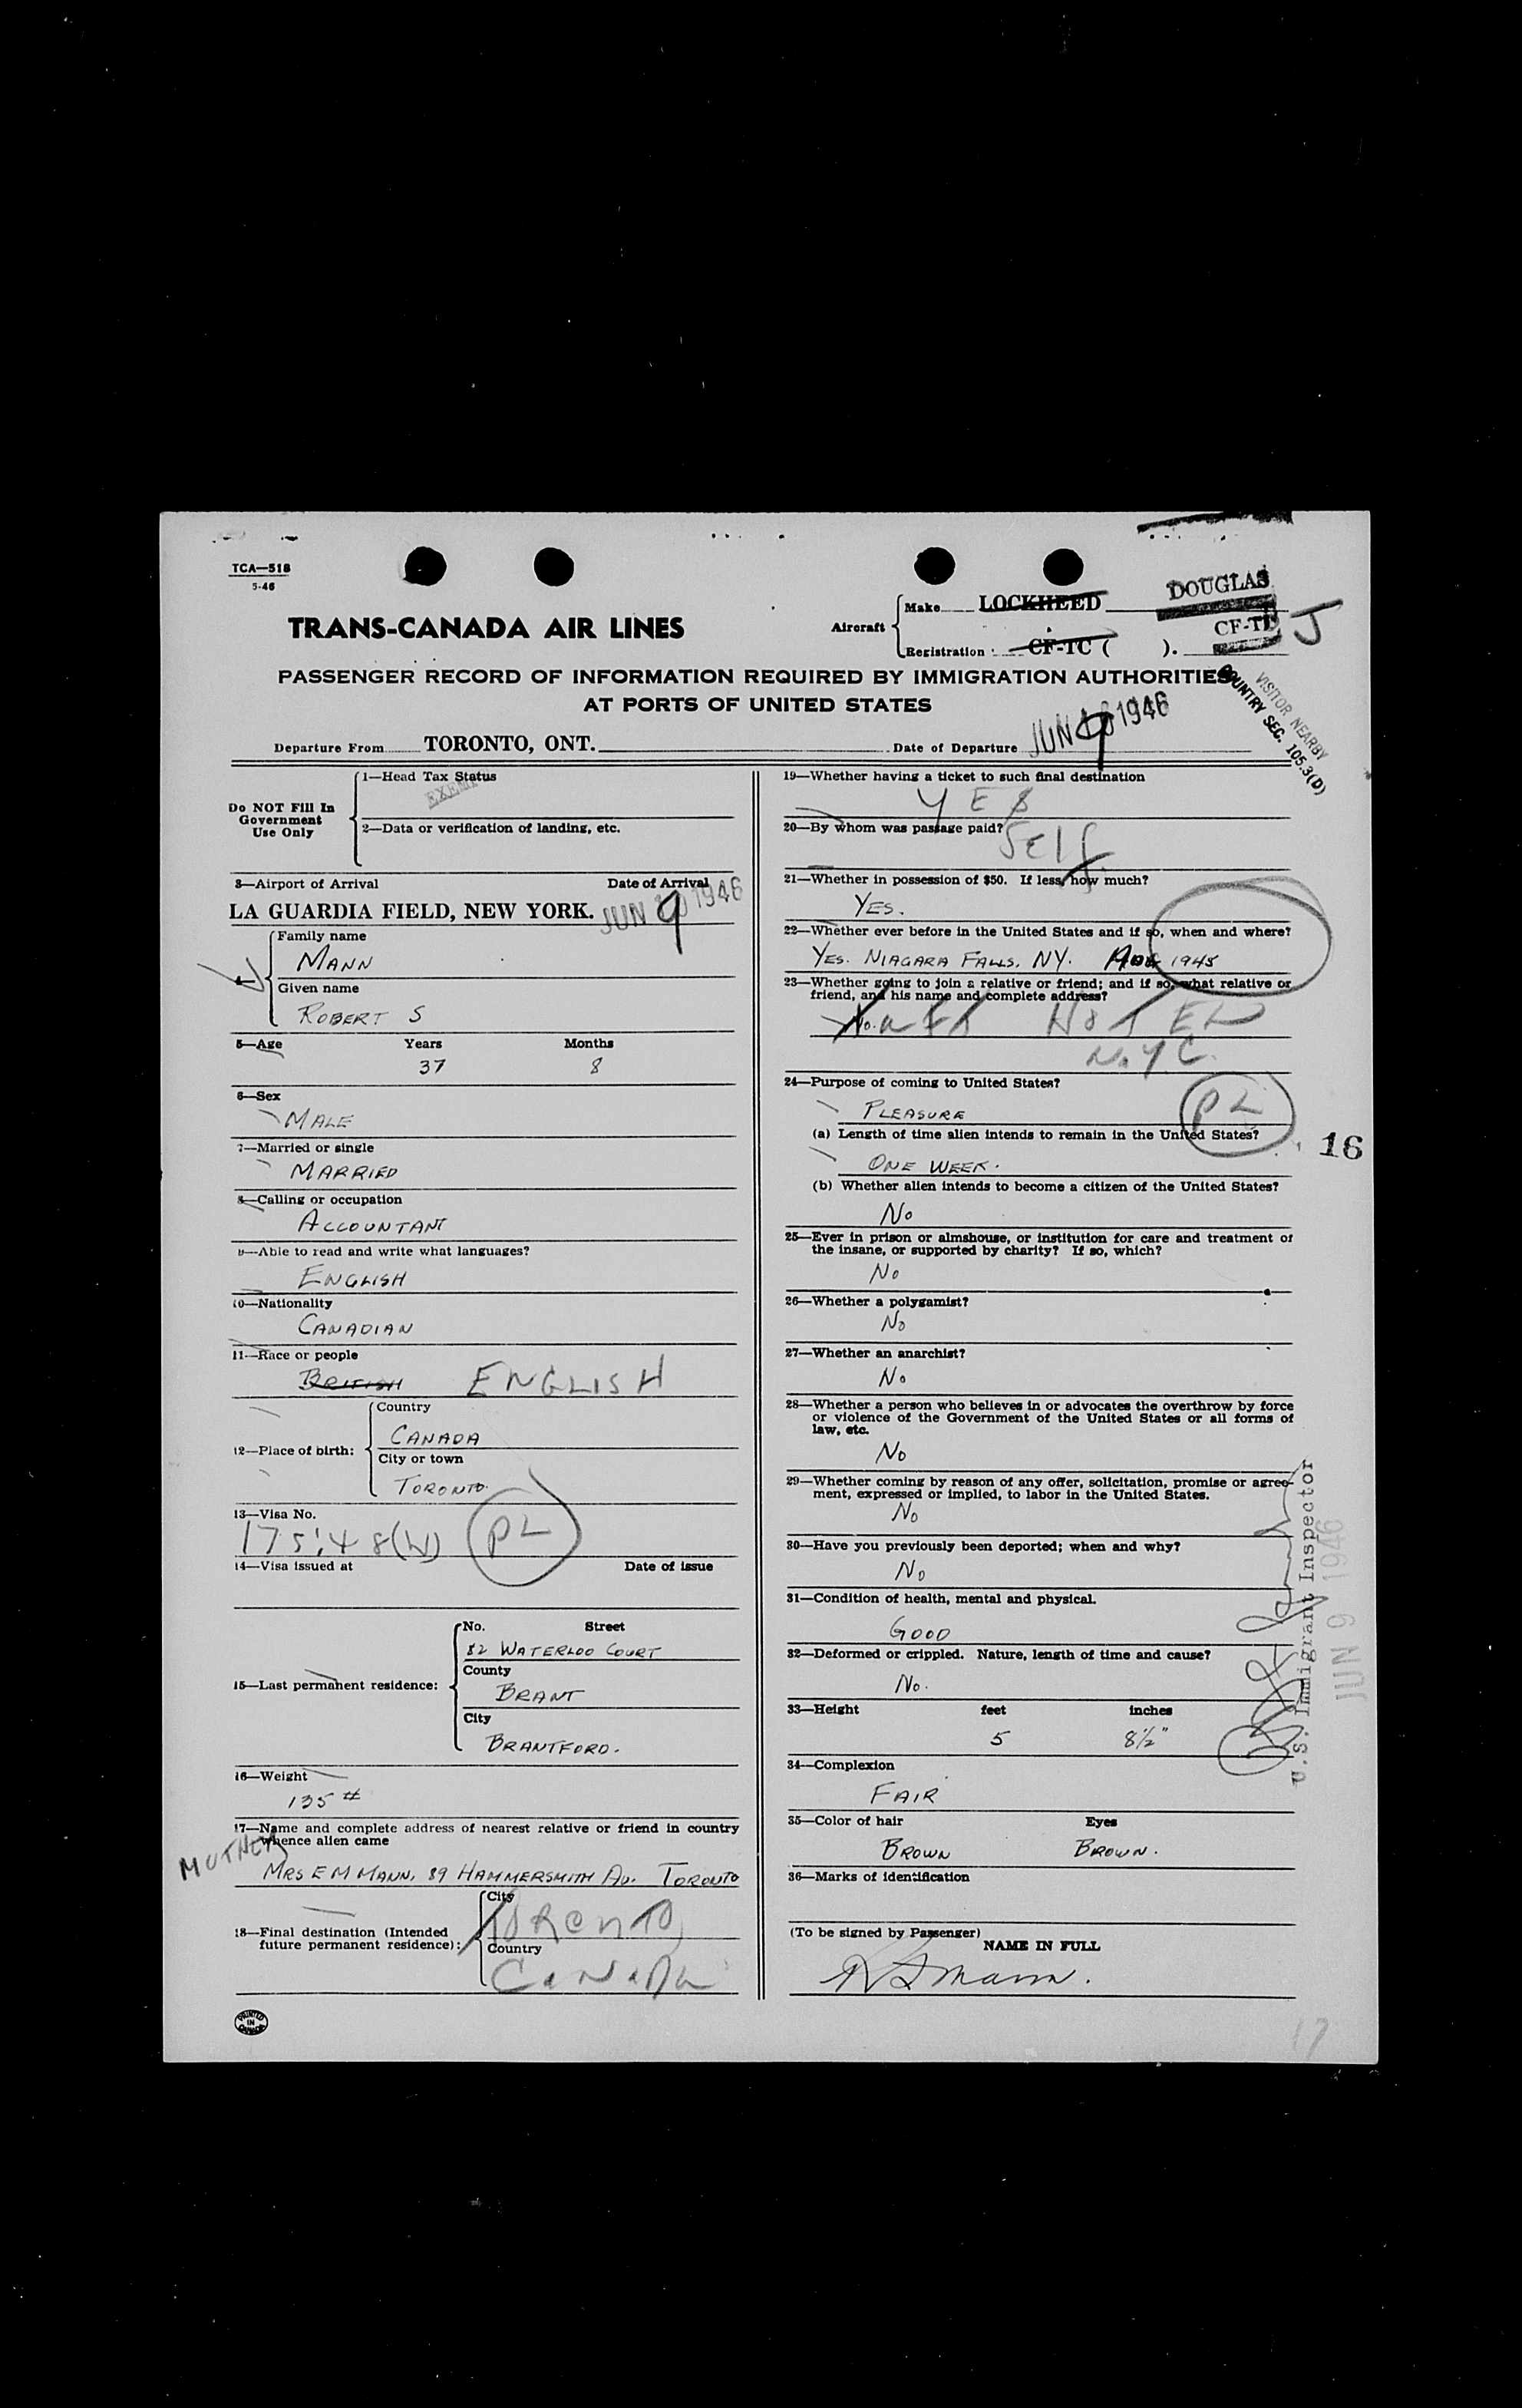 TCA—518
5-46
TRANS-CANADA AIR LINES
Aircraft
Make LOCKHEED DOUGLAS
Registration CF-TC ( ). CF-TD J
PASSENGER RECORD OF INFORMATION REQUIRED BY IMMIGRATION AUTHORITIES
AT PORTS OF UNITED STATES
VISITOR NEARBY
COUNTRY SEC. 105.3(D)
Departure From TORONTO, ONT. Date of Departure JUN 9 1946
Do NOT Fill In
Government
Use Only
1—Head Tax Status
EXEMPT
2—Data or verification of landing, etc.
3—Airport of Arrival Date of Arrival
LA GUARDIA FIELD, NEW YORK. JUN 9 1946
4—
Family name
MANN
Given name
ROBERT S
5—Age Years Months
37 8
6—Sex
MALE
7—Married or single
MARRIED
8—Calling or occupation
ACCOUNTANT
9—Able to read and write what languages?
ENGLISH
10—Nationality
CANADIAN
11—Race or people
BRITISH ENGLISH
12—Place of birth:
Country
CANADA
City or town
TORONTO.
13—Visa No.
175.48(W) PL
14—Visa issued at Date of issue
15—Last permanent residence:
No. Street
82 WATERLOO COURT
County
BRANT
City
BRANTFORD.
16—Weight
135 #
17—Name and complete address of nearest relative or friend in country
whence alien came
MOTHER
MRS E M MANN, 89 HAMMERSMITH AV. TORONTO
18—Final destination (Intended
future permanent residence):
City
TORONTO
Country
CANADA
PRINTED
IN
CANADA
19—Whether having a ticket to such final destination
YES
20—By whom was passage paid?
SELF
21—Whether in possession of $50. If less, how much?
YES.
22—Whether ever before in the United States and if so, when and where?
YES. NIAGARA FALLS, NY. 1945
23—Whether going to join a relative or friend; and if so, what relative or
friend, and his name and complete address?
No. HOTEL
N.Y.C.
24—Purpose of coming to United States?
PLEASURE PL
(a) Length of time alien intends to remain in the United States?
16
ONE WEEK.
(b) Whether alien intends to become a citizen of the United States?
No
25—Ever in prison or almshouse, or institution for care and treatment of
the insane, or supported by charity? If so, which?
No
26—Whether a polygamist?
No
27—Whether an anarchist?
No
28—Whether a person who believes in or advocates the overthrow by force
or violence of the Government of the United States or all forms of
law, etc.
No
29—Whether coming by reason of any offer, solicitation, promise or agree-
ment, expressed or implied, to labor in the United States.
No
30—Have you previously been deported; when and why?
No
31—Condition of health, mental and physical.
GOOD
32—Deformed or crippled. Nature, length of time and cause?
No.
33—Height feet inches
5 8½"
34—Complexion
FAIR
35—Color of hair Eyes
BROWN BROWN.
36—Marks of identification
(To be signed by Passenger)
NAME IN FULL
R S Mann.
U.S. Immigrant Inspector
JUN 9 1946
17